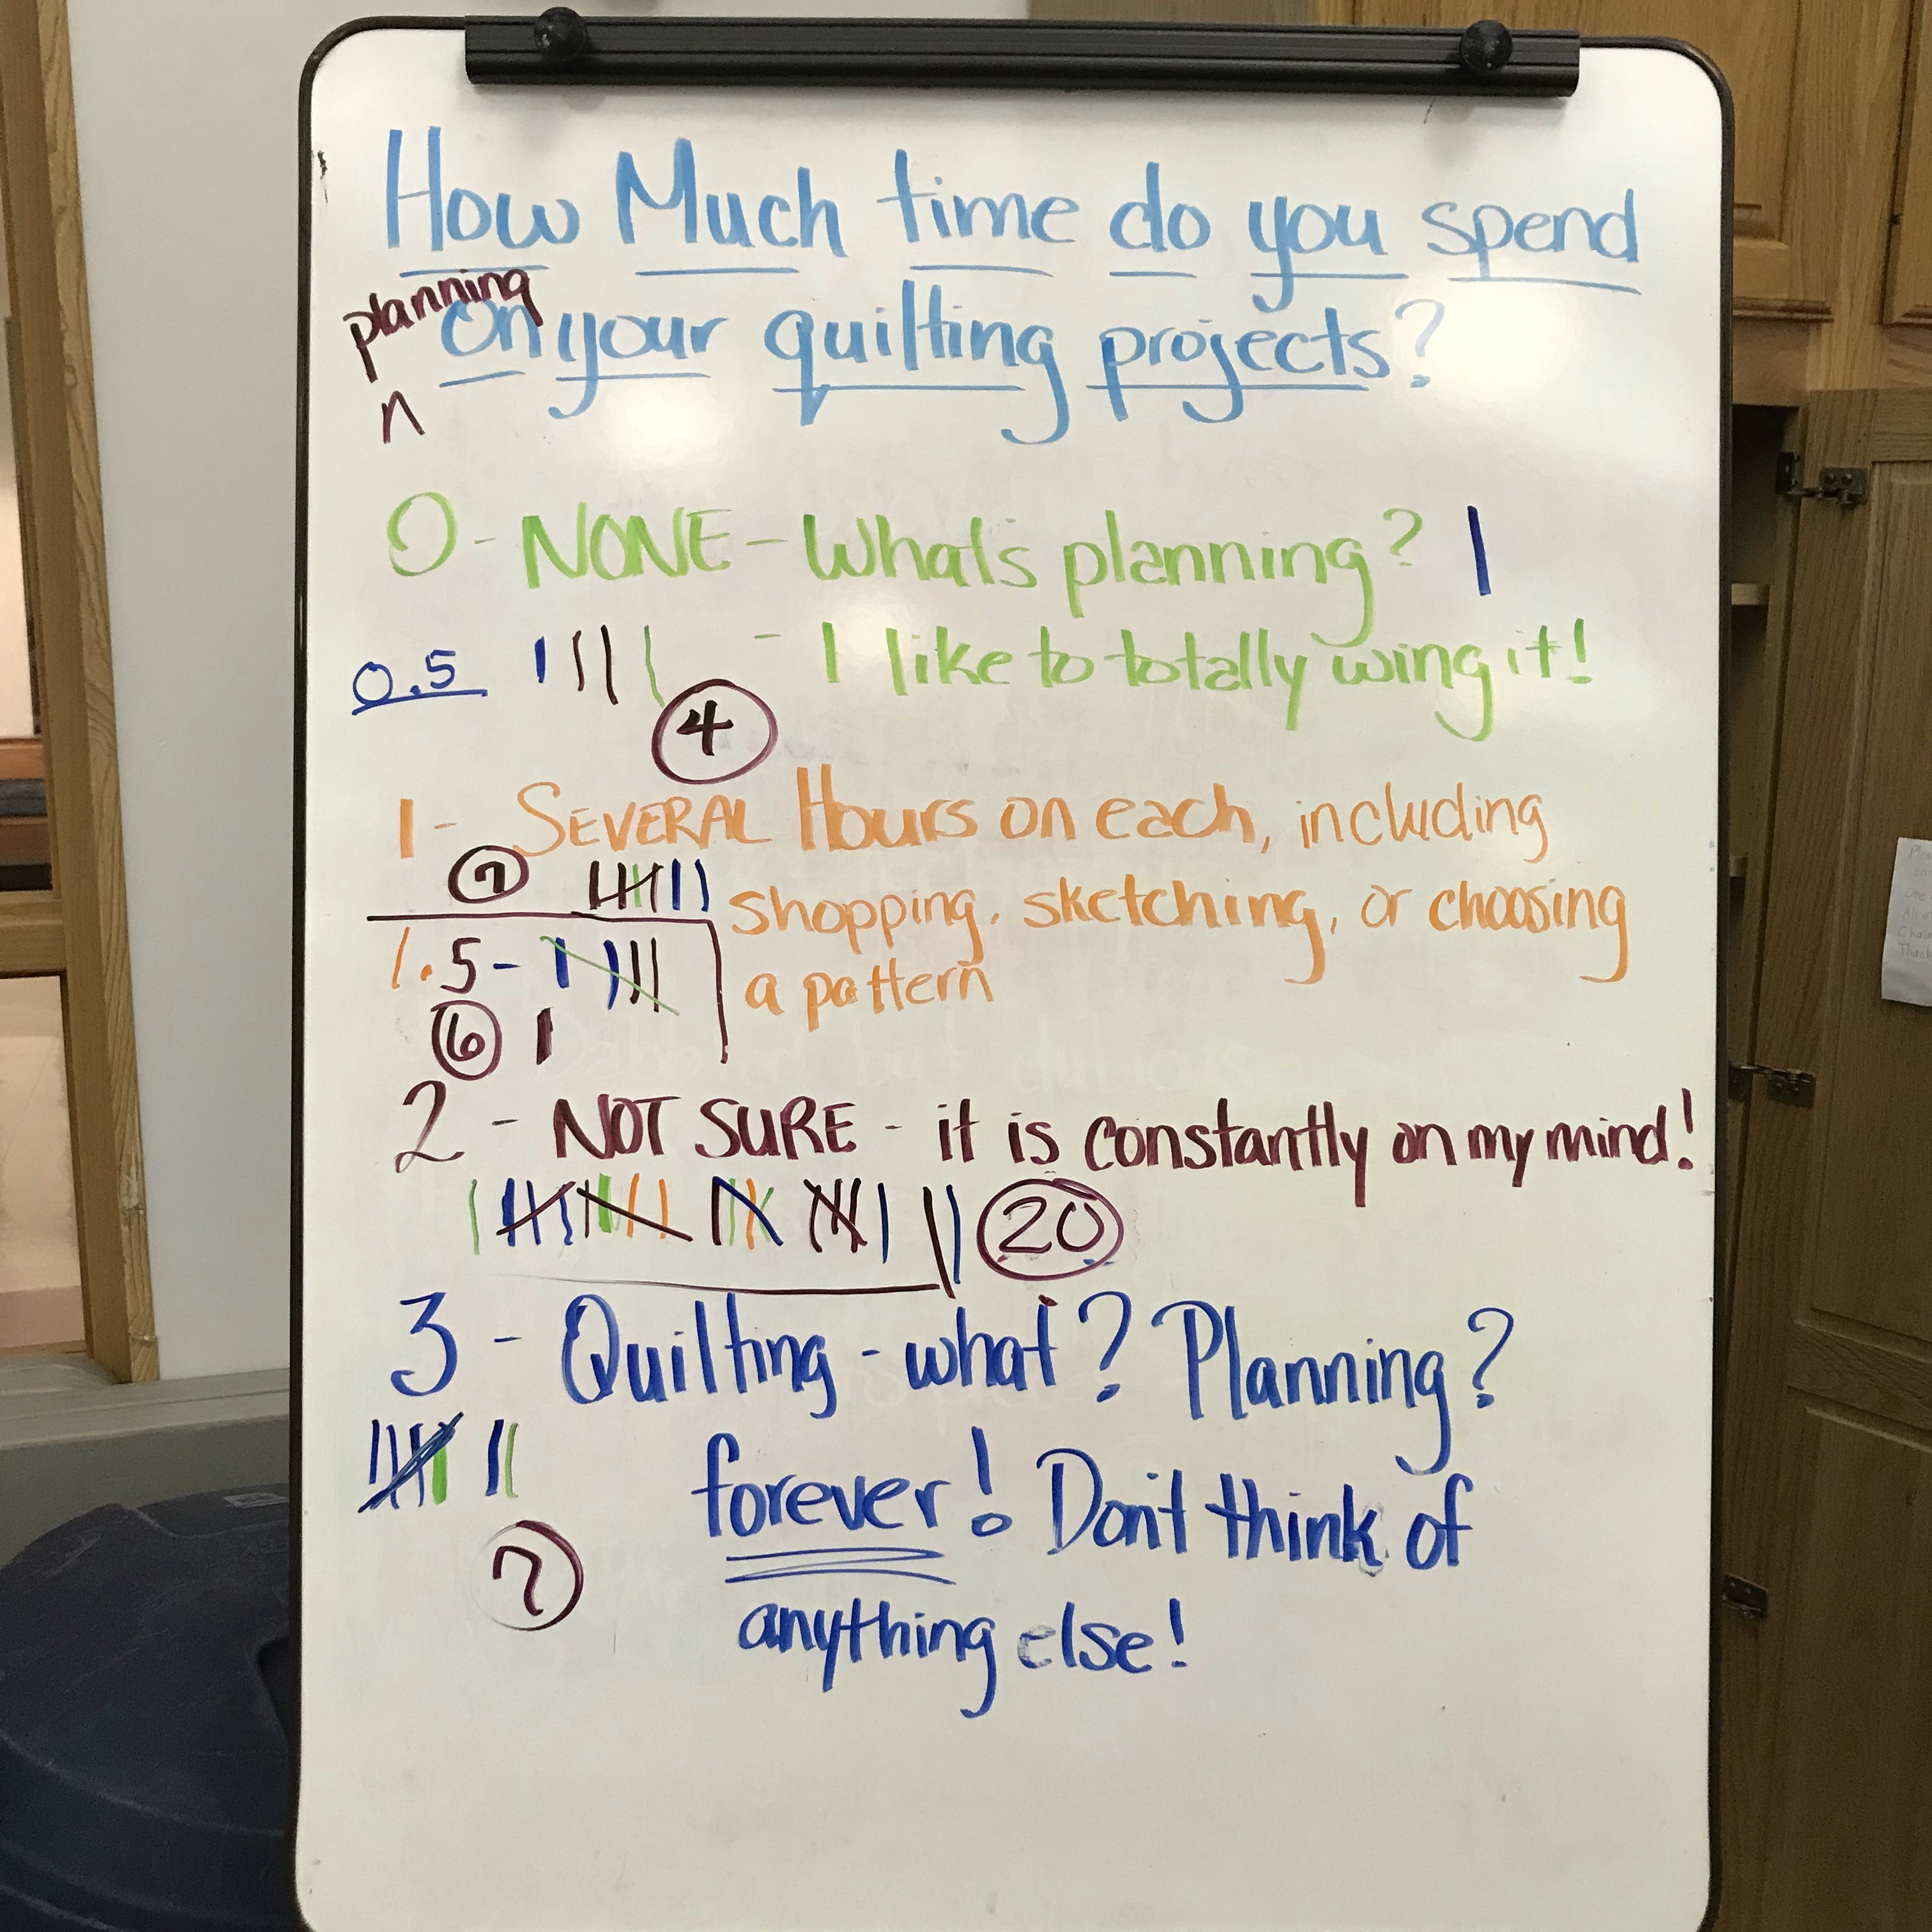 How Much time do you spend
planning
on your quilting projects?
n
0 - NONE - Whats planning? |
0.5 |||| - I like to totally wing it!
4
1 - SEVERAL Hours on each, including
7 shopping, sketching, or choosing
1.5 - a pattern
6 |
2 - NOT SURE - it is constantly on my mind!
20
3 - Quilting - what? Planning?
forever! Don't think of
7
anything else!